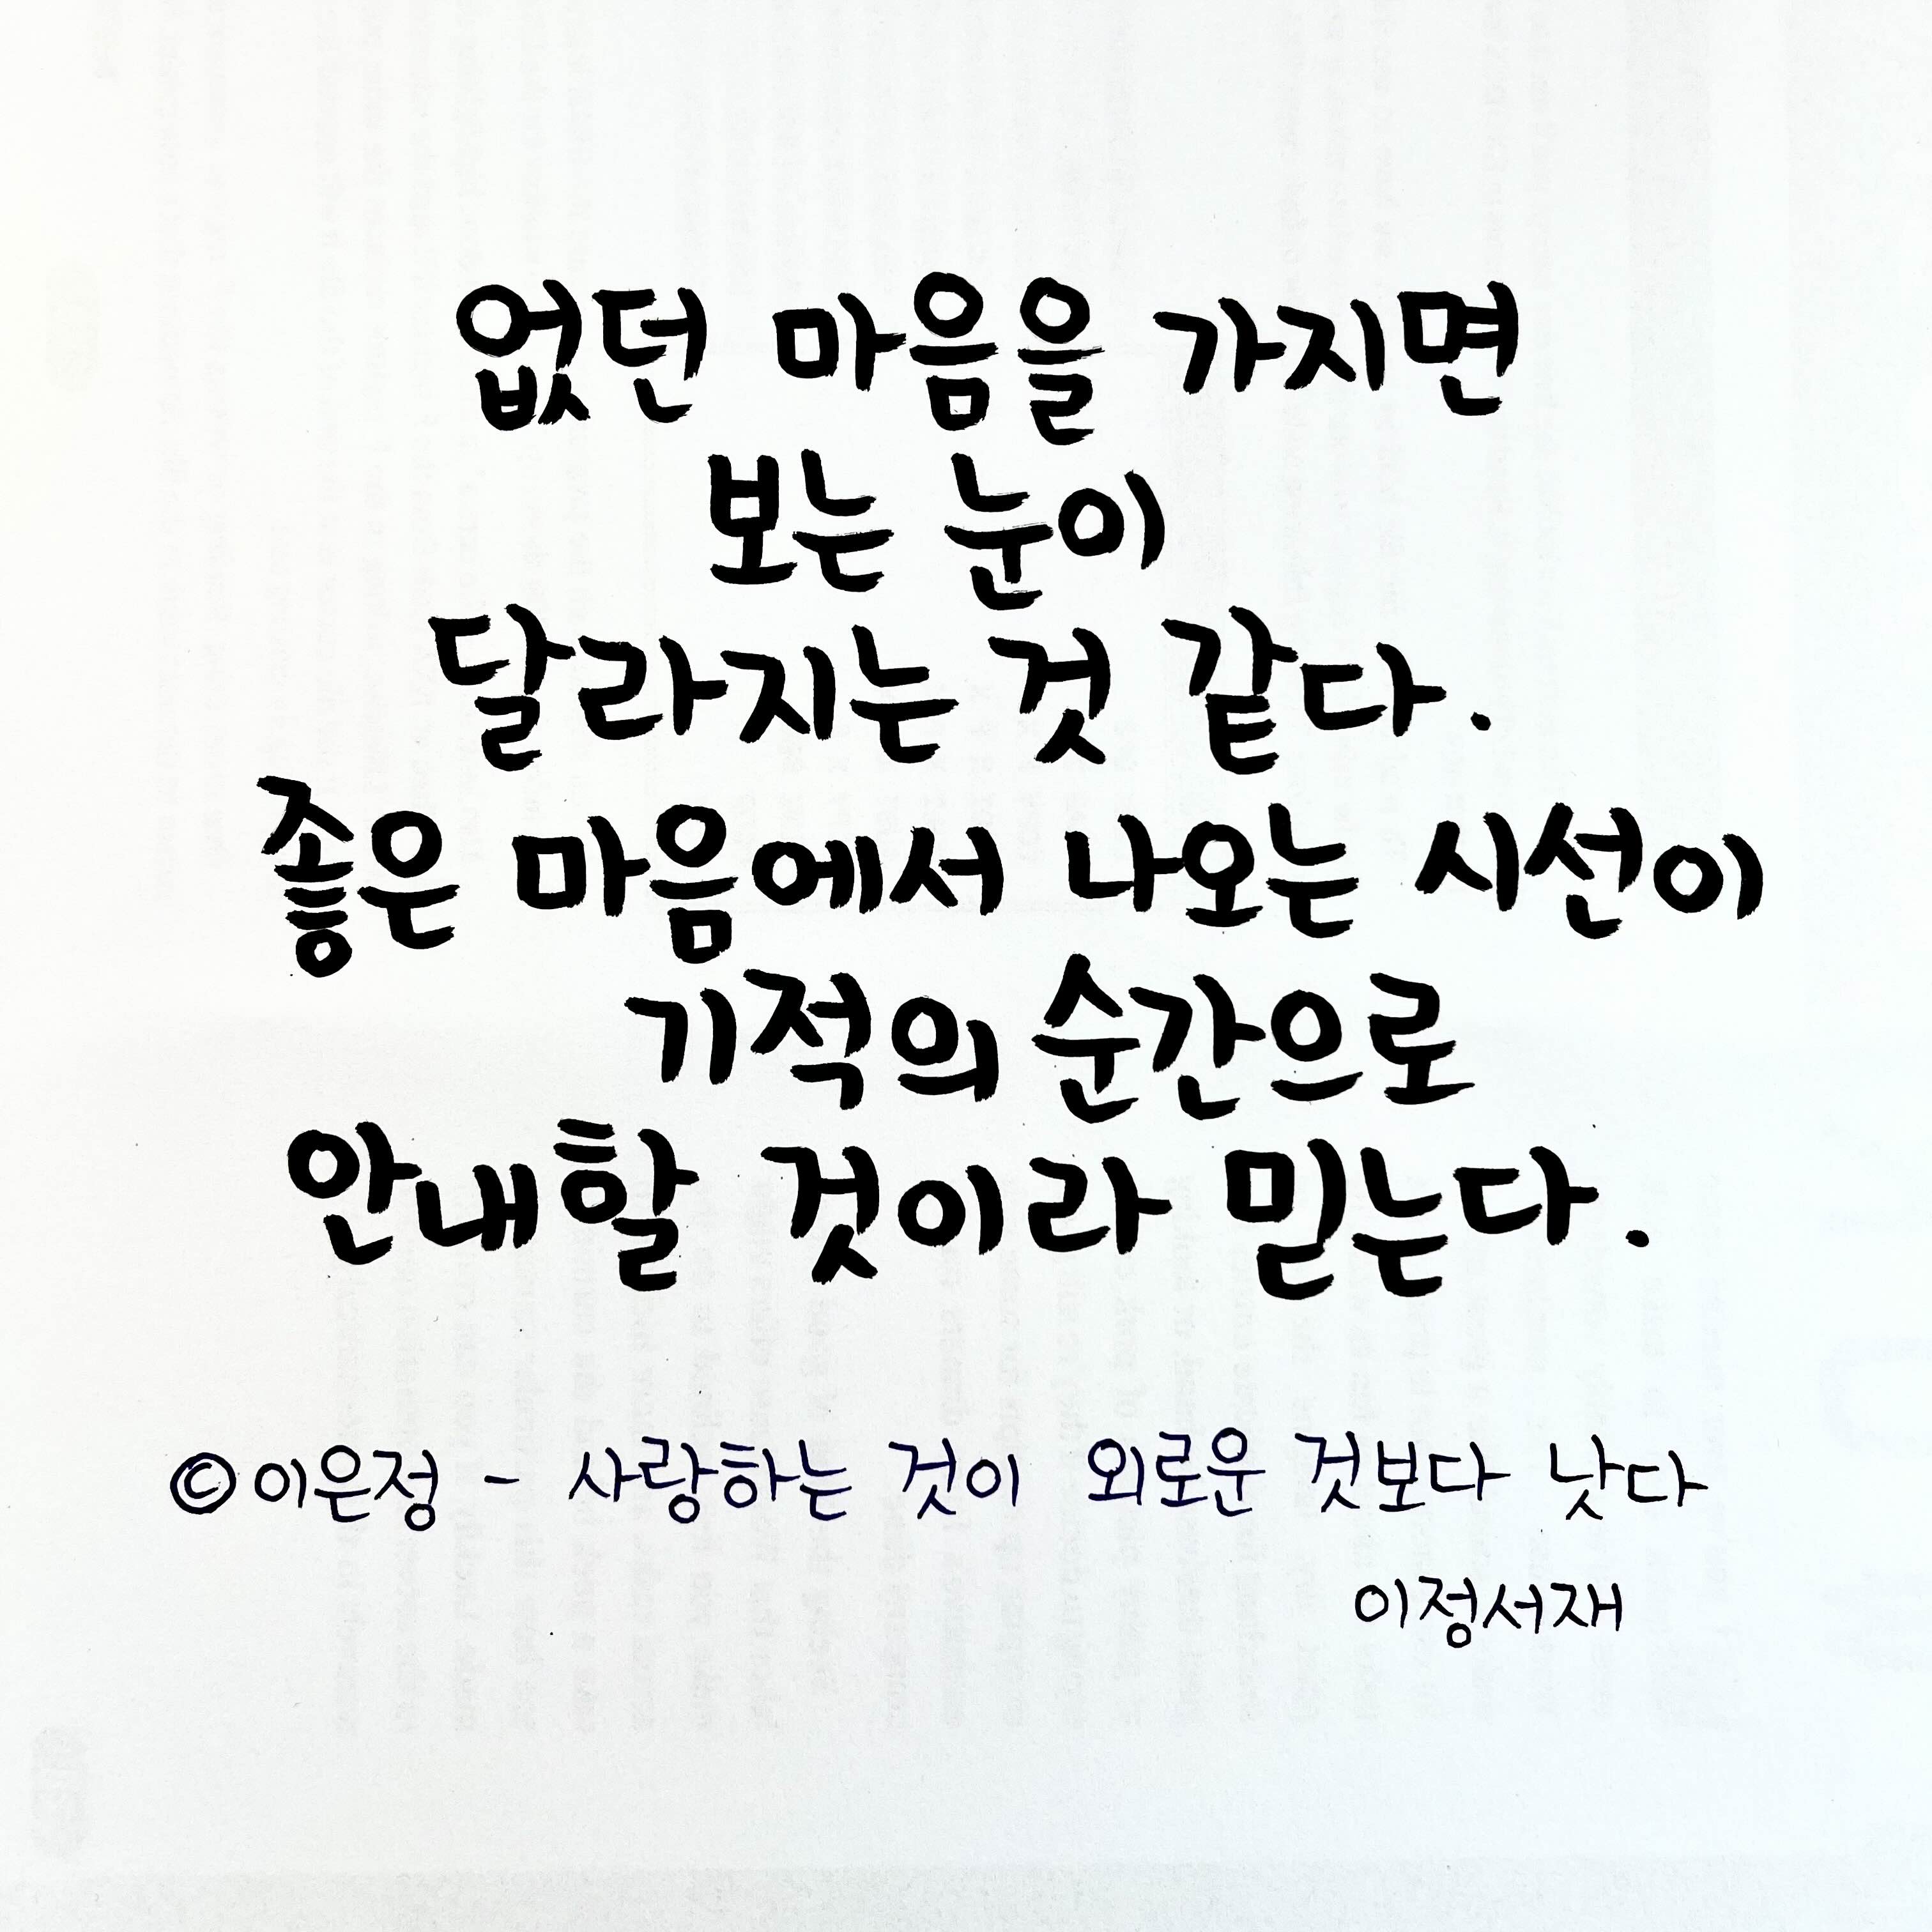 없던 마음을 가지면
보는 눈이
달라지는 것 같다.
좋은 마음에서 나오는 시선이
기적의 순간으로
안내할 것이라 믿는다.
©이은정 - 사랑하는 것이 외로운 것보다 낫다
이정서재